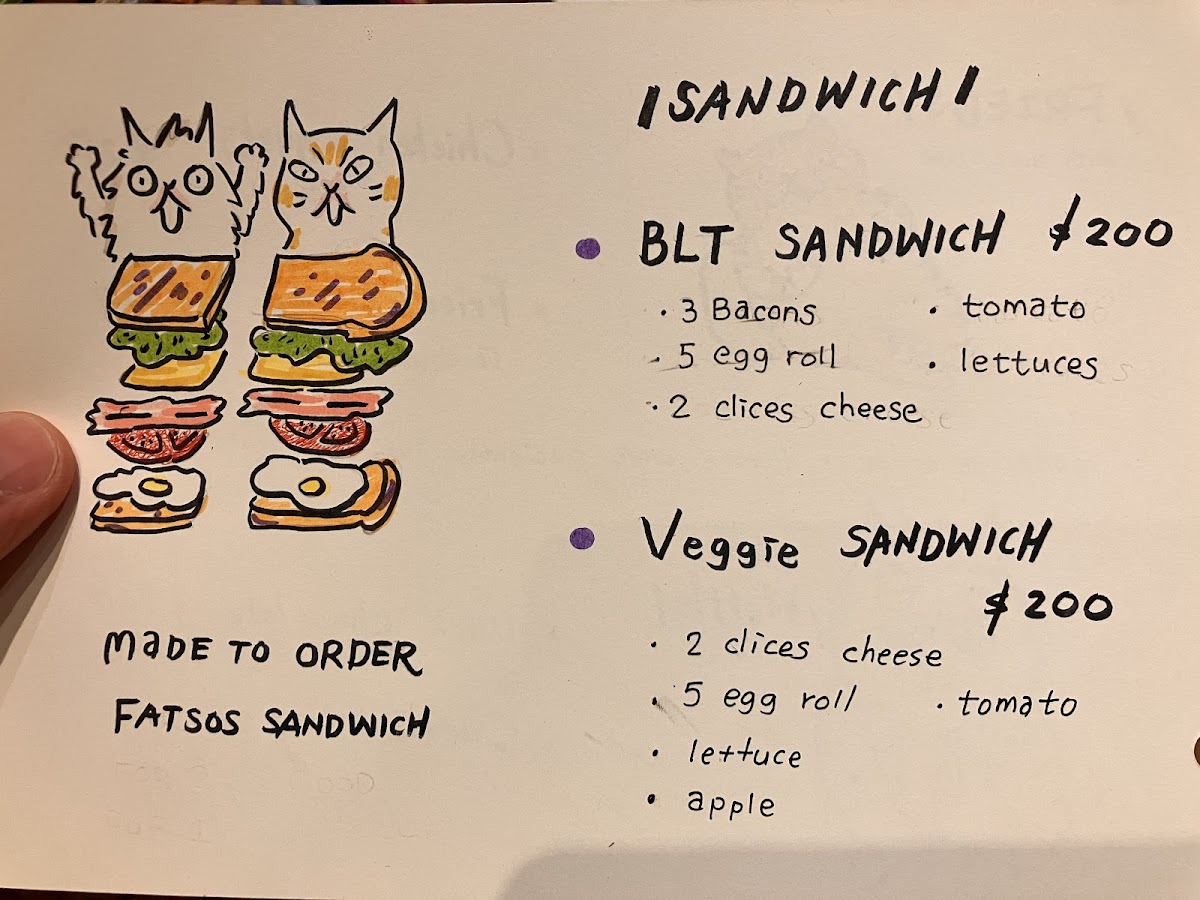 SANDWICH
BLT SANDWICH $200
· 3 Bacons · tomato
· 5 egg roll · lettuces
· 2 clices cheese
Veggie SANDWICH
$200
· 2 clices cheese
· 5 egg roll · tomato
· lettuce
· apple
MADE TO ORDER
FATSOS SANDWICH